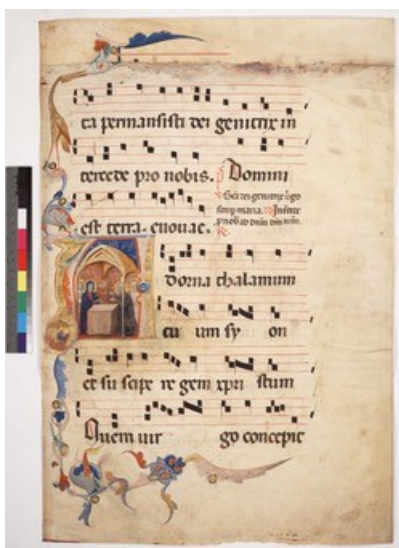 ta permansisti dei genitrix in
tercede pro nobis. Domini
est terra. euouae.
Adorna thalamum
tuum sy on
et suscipe regem xpristum
Quem uirgo concepit